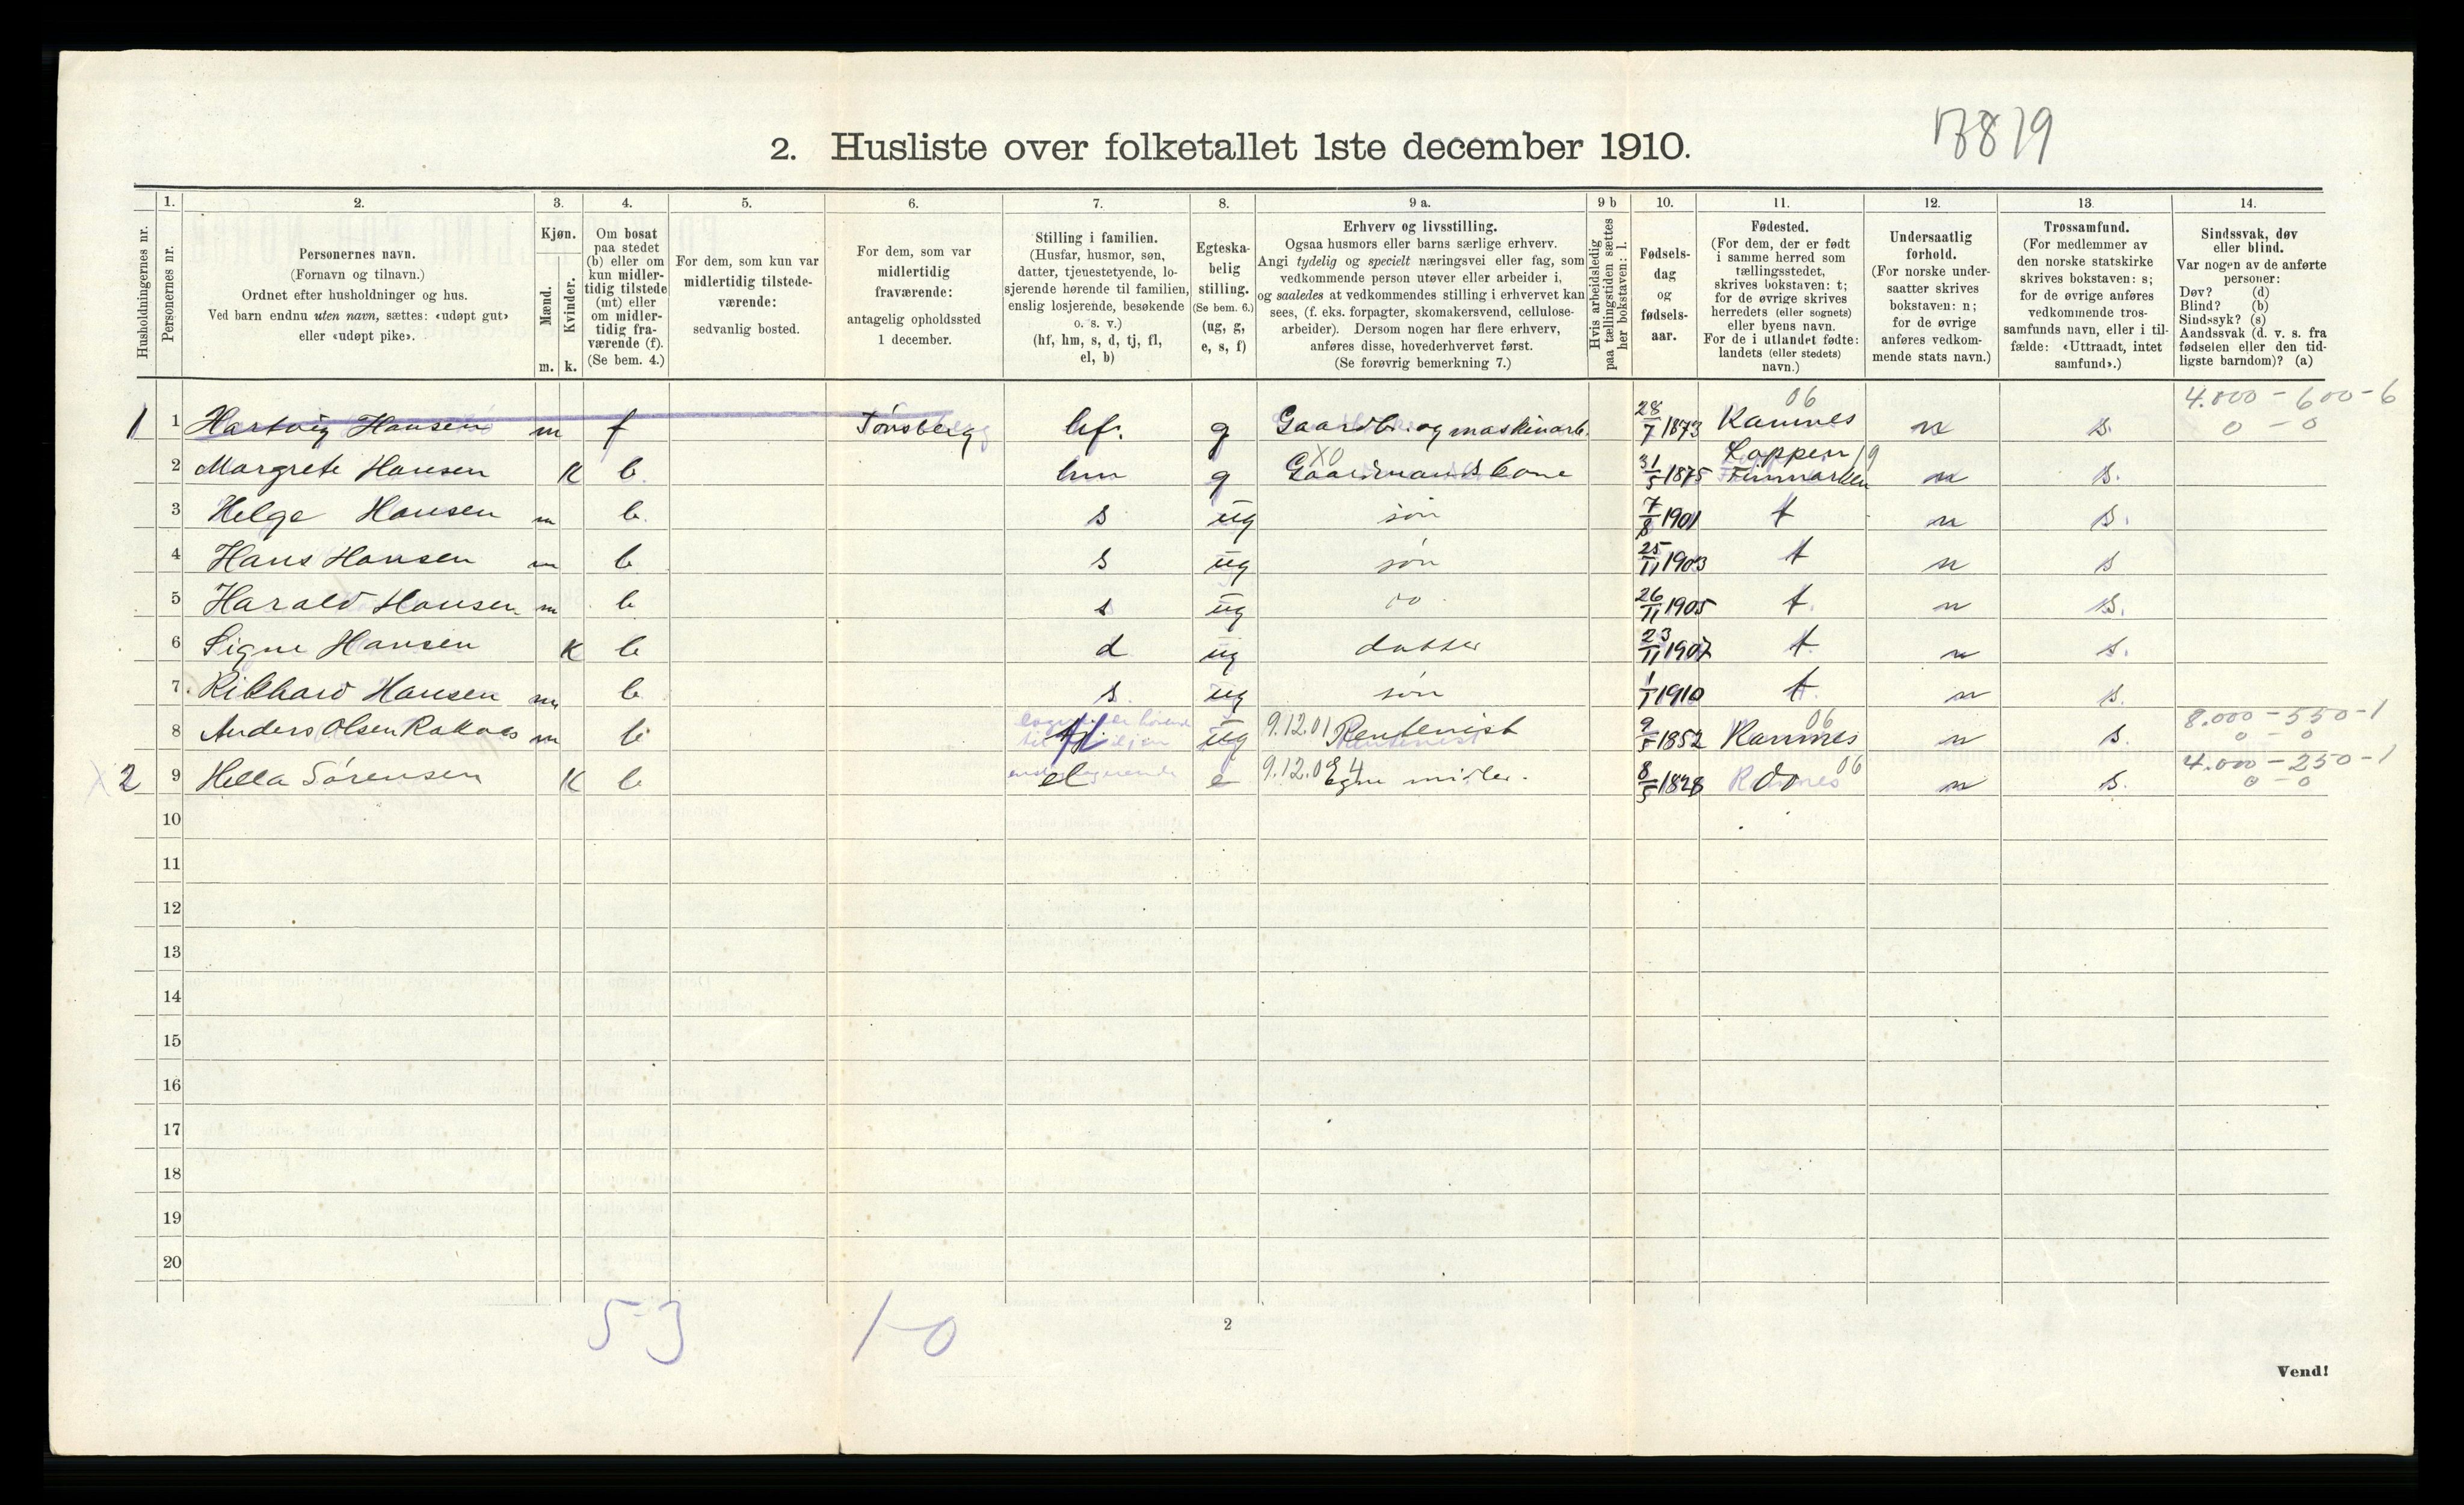 2. Husliste over folketallet 1ste december 1910.
1. 2. 3. 4. 5. 6. 7. 8. 9 a. 9 b 10. 11. 12. 13. 14.
Husholdningernes nr.
Personernes nr.
Personernes navn.
(Fornavn og tilnavn.)
Ordnet efter husholdninger og hus.
Ved barn endnu uten navn, sættes: «udøpt gut»
eller «udøpt pike».
Kjøn.
Mænd.
Kvinder.
m. k.
Om bosat
paa stedet
(b) eller om
kun midler-
tidig tilstede
(mt) eller
om midler-
tidig fra-
værende (f).
(Se bem. 4.)
For dem, som kun var
midlertidig tilstede-
værende:
sedvanlig bosted.
For dem, som var
midlertidig
fraværende:
antagelig opholdssted
1 december.
Stilling i familien.
(Husfar, husmor, søn,
datter, tjenestetyende, lo-
sjerende hørende til familien,
enslig losjerende, besøkende
o. s. v.)
(hf, hm, s, d, tj, fl,
el, b)
Egteska-
belig
stilling.
(Se bem. 6.)
(ug, g,
e, s, f)
Erhverv og livsstilling.
Ogsaa husmors eller barns særlige erhverv.
Angi tydelig og specielt næringsvei eller fag, som
vedkommende person utøver eller arbeider i,
og saaledes at vedkommendes stilling i erhvervet kan
sees, (f. eks. forpagter, skomakersvend, cellulose-
arbeider). Dersom nogen har flere erhverv,
anføres disse, hovederhvervet først.
(Se forøvrig bemerkning 7.)
Hvis arbeidsledig
paa tællingstiden sættes
her bokstaven: l.
Fødsels-
dag
og
fødsels-
aar.
Fødested.
(For dem, der er født
i samme herred som
tællingsstedet,
skrives bokstaven: t;
for de øvrige skrives
herredets (eller sognets)
eller byens navn.
For de i utlandet fødte:
landets (eller stedets)
navn.)
Undersaatlig
forhold.
(For norske under-
saatter skrives
bokstaven: n;
for de øvrige
anføres vedkom-
mende stats navn.)
Trossamfund.
(For medlemmer av
den norske statskirke
skrives bokstaven: s;
for de øvrige anføres
vedkommende tros-
samfunds navn, eller i til-
fælde: «Uttraadt, intet
samfund».)
Sindssvak, døv
eller blind.
Var nogen av de anførte
personer:
Døv? (d)
Blind? (b)
Sindssyk? (s)
Aandssvak (d. v. s. fra
fødselen eller den tid-
ligste barndom)? (a)
06 4.000 - 600 - 6
1 1 Hartvig Hansen m f Tønsberg hf. g Gaardbr. og maskinarb. 28/7 1873 Ramnes n s. 0 - 0
X0 Loppen 19
2 Margrete Hansen K b. hm g Gaardmandskone 31/5 1875 Finmarken n s.
3 Helge Hansen m b. s ug søn 7/8 1901 t n s.
4 Hans Hansen m b s ug søn 25/11 1903 t n s
5 Harald Hansen m b s ug do 26/11 1905 t. n s.
6 Signe Hansen K b d ug datter 23/11 1907 t n s.
7. Rikhard Hansen m b s. ug søn 1/1 1910 t. n s.
06 8.000 - 550 - 1
8 Anders Olsen m b fl ug 9.12.01 Rentenist 9/5 1852 Ramnes n s. 0 - 0
06 4.000 - 250 - 1
2 9 Hella Sørensen K b el e Egne midler. 8/5 1828 do n s. 0 - 0
10
11
12
13
14
15
16
17
18
19
20
5-3 1-0
2
Vend!